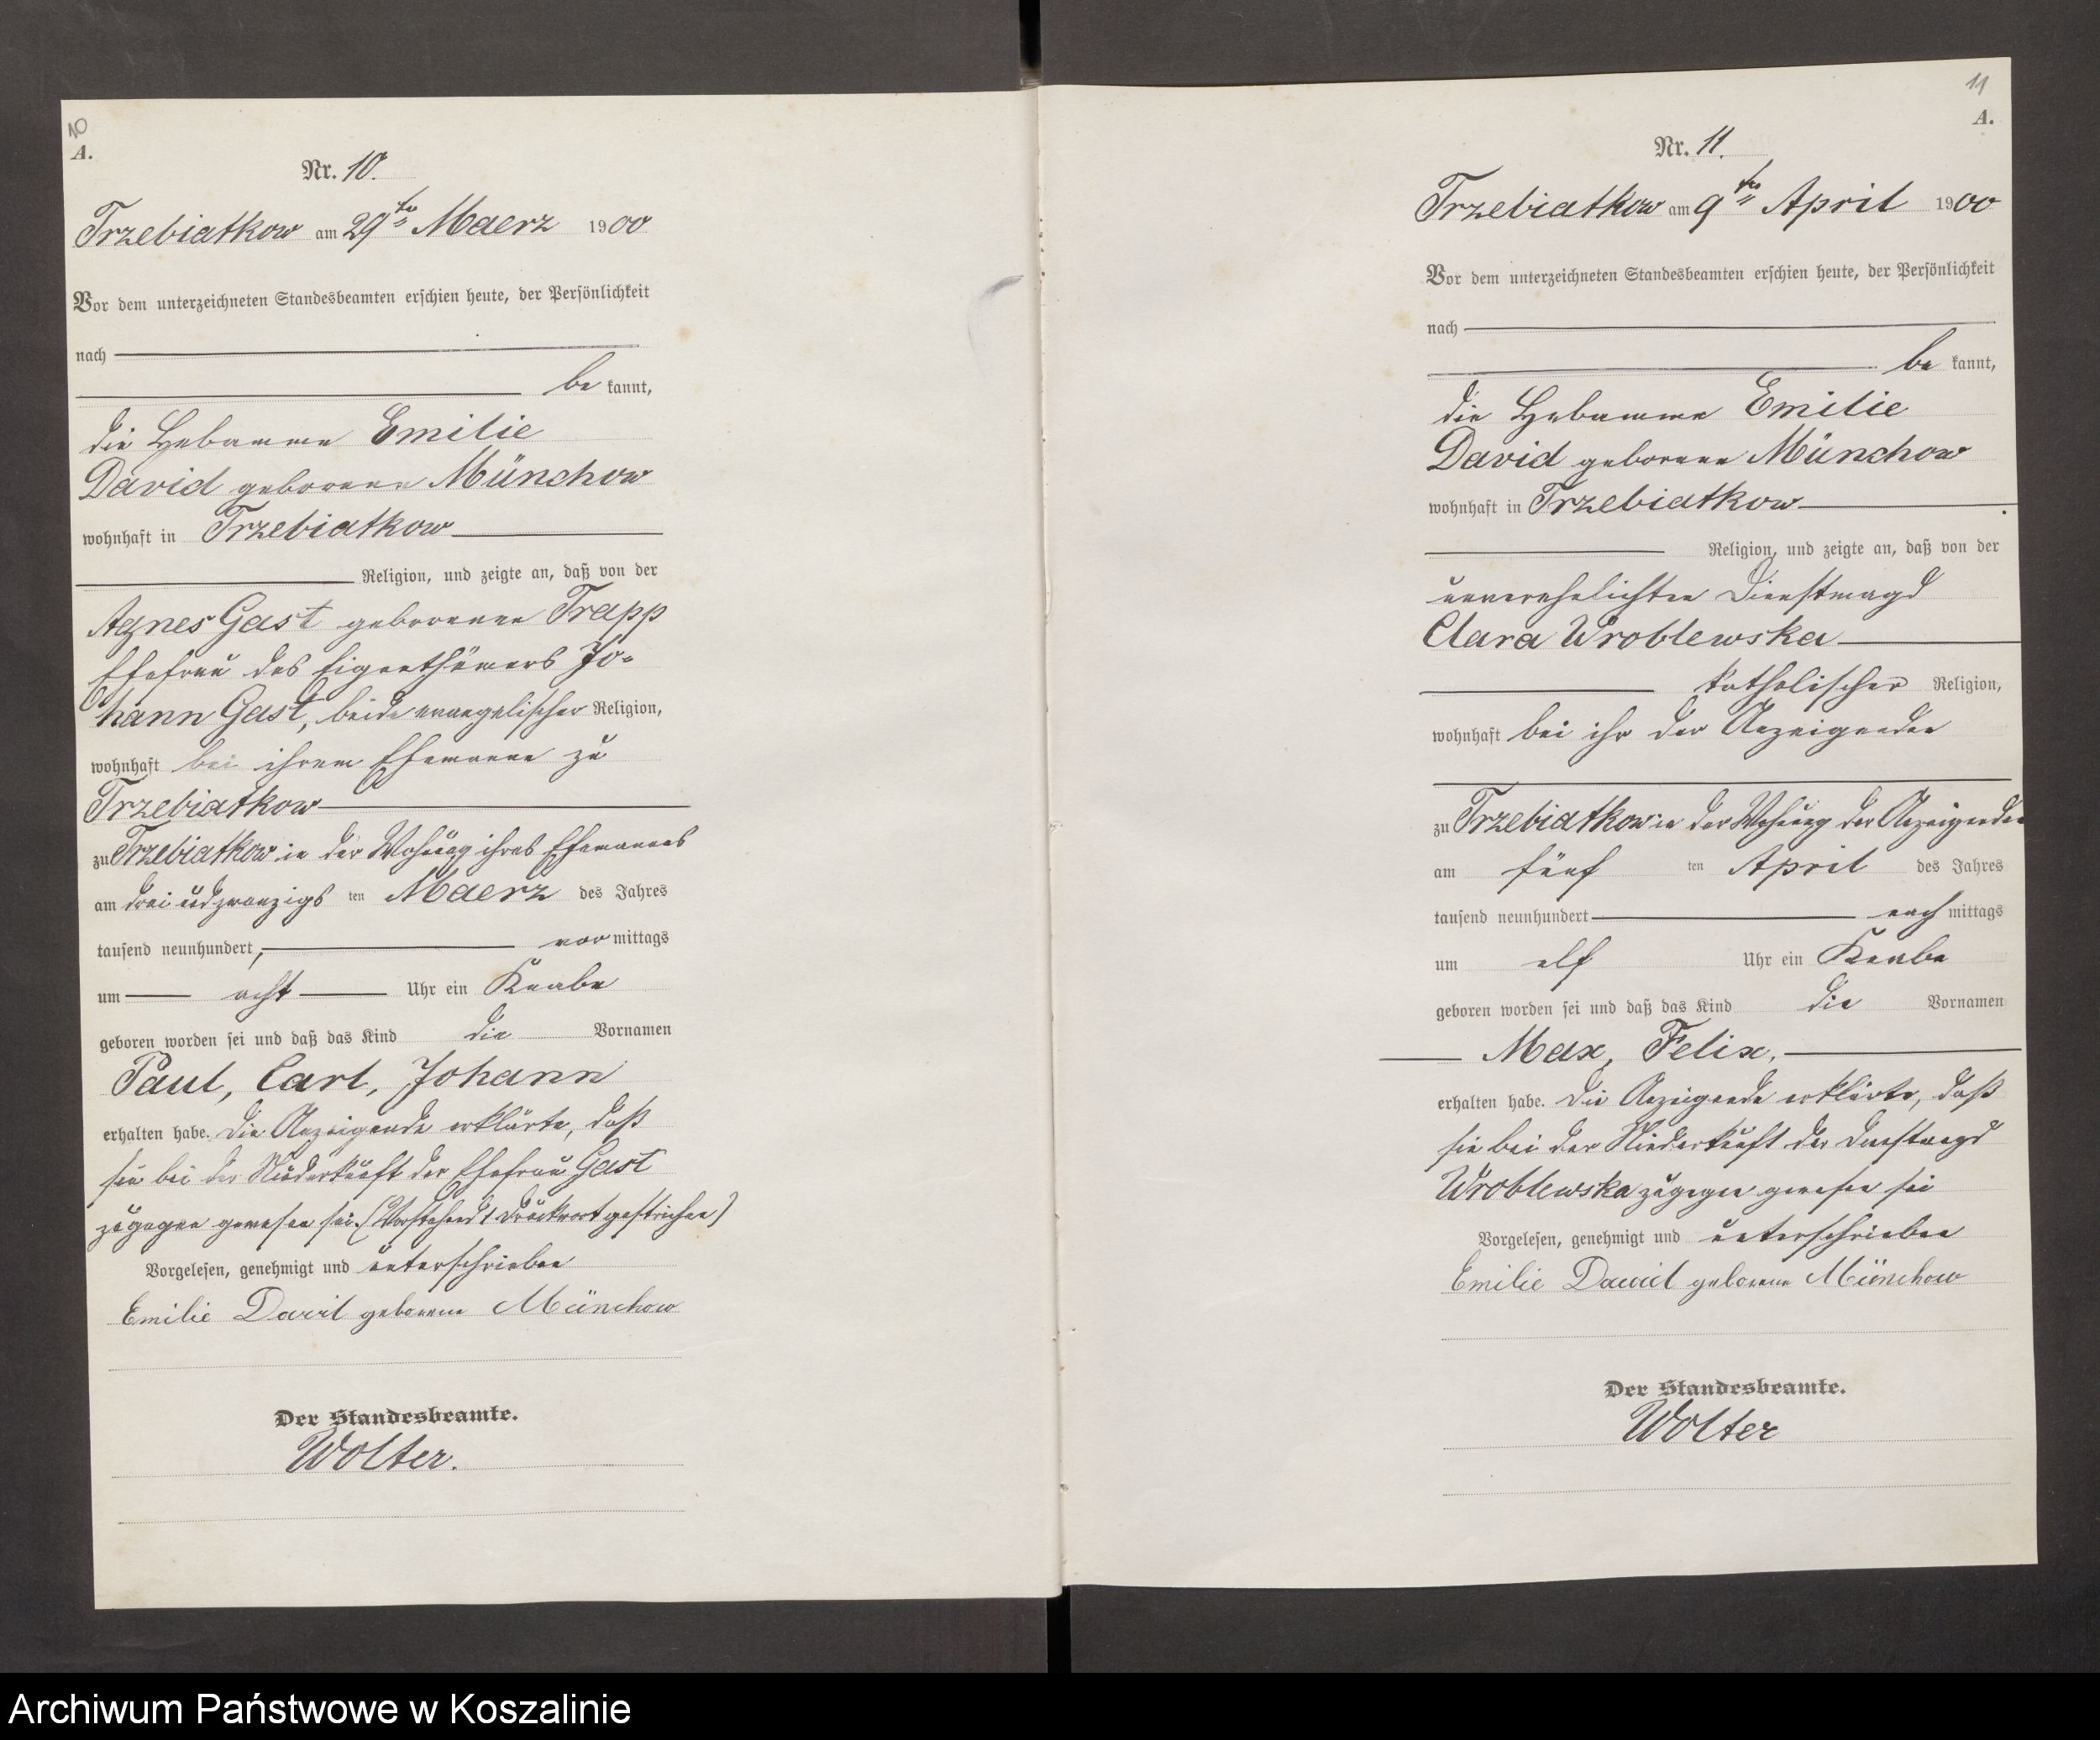 10
A.
Nr. 10.
Trzebiatkow am 29ten Maerz 1900
Vor dem unterzeichneten Standesbeamten erschien heute, der Persönlichkeit
nach
be kannt,
die Hebamme Emilie
David geborene Münchow
wohnhaft in Trzebiatkow
Religion, und zeigte an, daß von der
Agnes Gast geborenen Trapp
Ehefrau des Eigenthümers Jo-
hann Gast, beide evangelischer Religion,
wohnhaft bei ihrem Ehemanne zu
Trzebiatkow
zu Trzebiatkow in der Wohnung ihres Ehemannes
am drei undzwanzigs ten Maerz des Jahres
tausend neunhundert, vor mittags
um acht Uhr ein Knabe
geboren worden sei und daß das Kind die Vornamen
Paul, Carl, Johann
erhalten habe. Die Anzeigende erklärte, daß
sie bei der Niederkunft der Ehefrau Gast
zugegen gewesen sei. (Vorstehend 1 Druckwort gestrichen)
Vorgelesen, genehmigt und unterschrieben
Emilie David geborene Münchow
Der Standesbeamte.
Wolter.
11
A.
Nr. 11.
Trzebiatkow am 9ten April 1900
Vor dem unterzeichneten Standesbeamten erschien heute, der Persönlichkeit
nach
be kannt,
die Hebamme Emilie
David geborene Münchow
wohnhaft in Trzebiatkow
Religion, und zeigte an, daß von der
unverehelichten Dienstmagd
Clara Wroblewska
katholischer Religion,
wohnhaft bei ihr der Anzeigenden
zu Trzebiatkow in der Wohnung der Anzeigenden
am fünf ten April des Jahres
tausend neunhundert nach mittags
um elf Uhr ein Knabe
geboren worden sei und daß das Kind die Vornamen
Max, Felix,
erhalten habe. Die Anzeigende erklärte, daß
sie bei der Niederkunft der Dienstmagd
Wroblewska zugegen gewesen sei
Vorgelesen, genehmigt und unterschrieben
Emilie David geborene Münchow
Der Standesbeamte.
Wolter
Archiwum Państwowe w Koszalinie